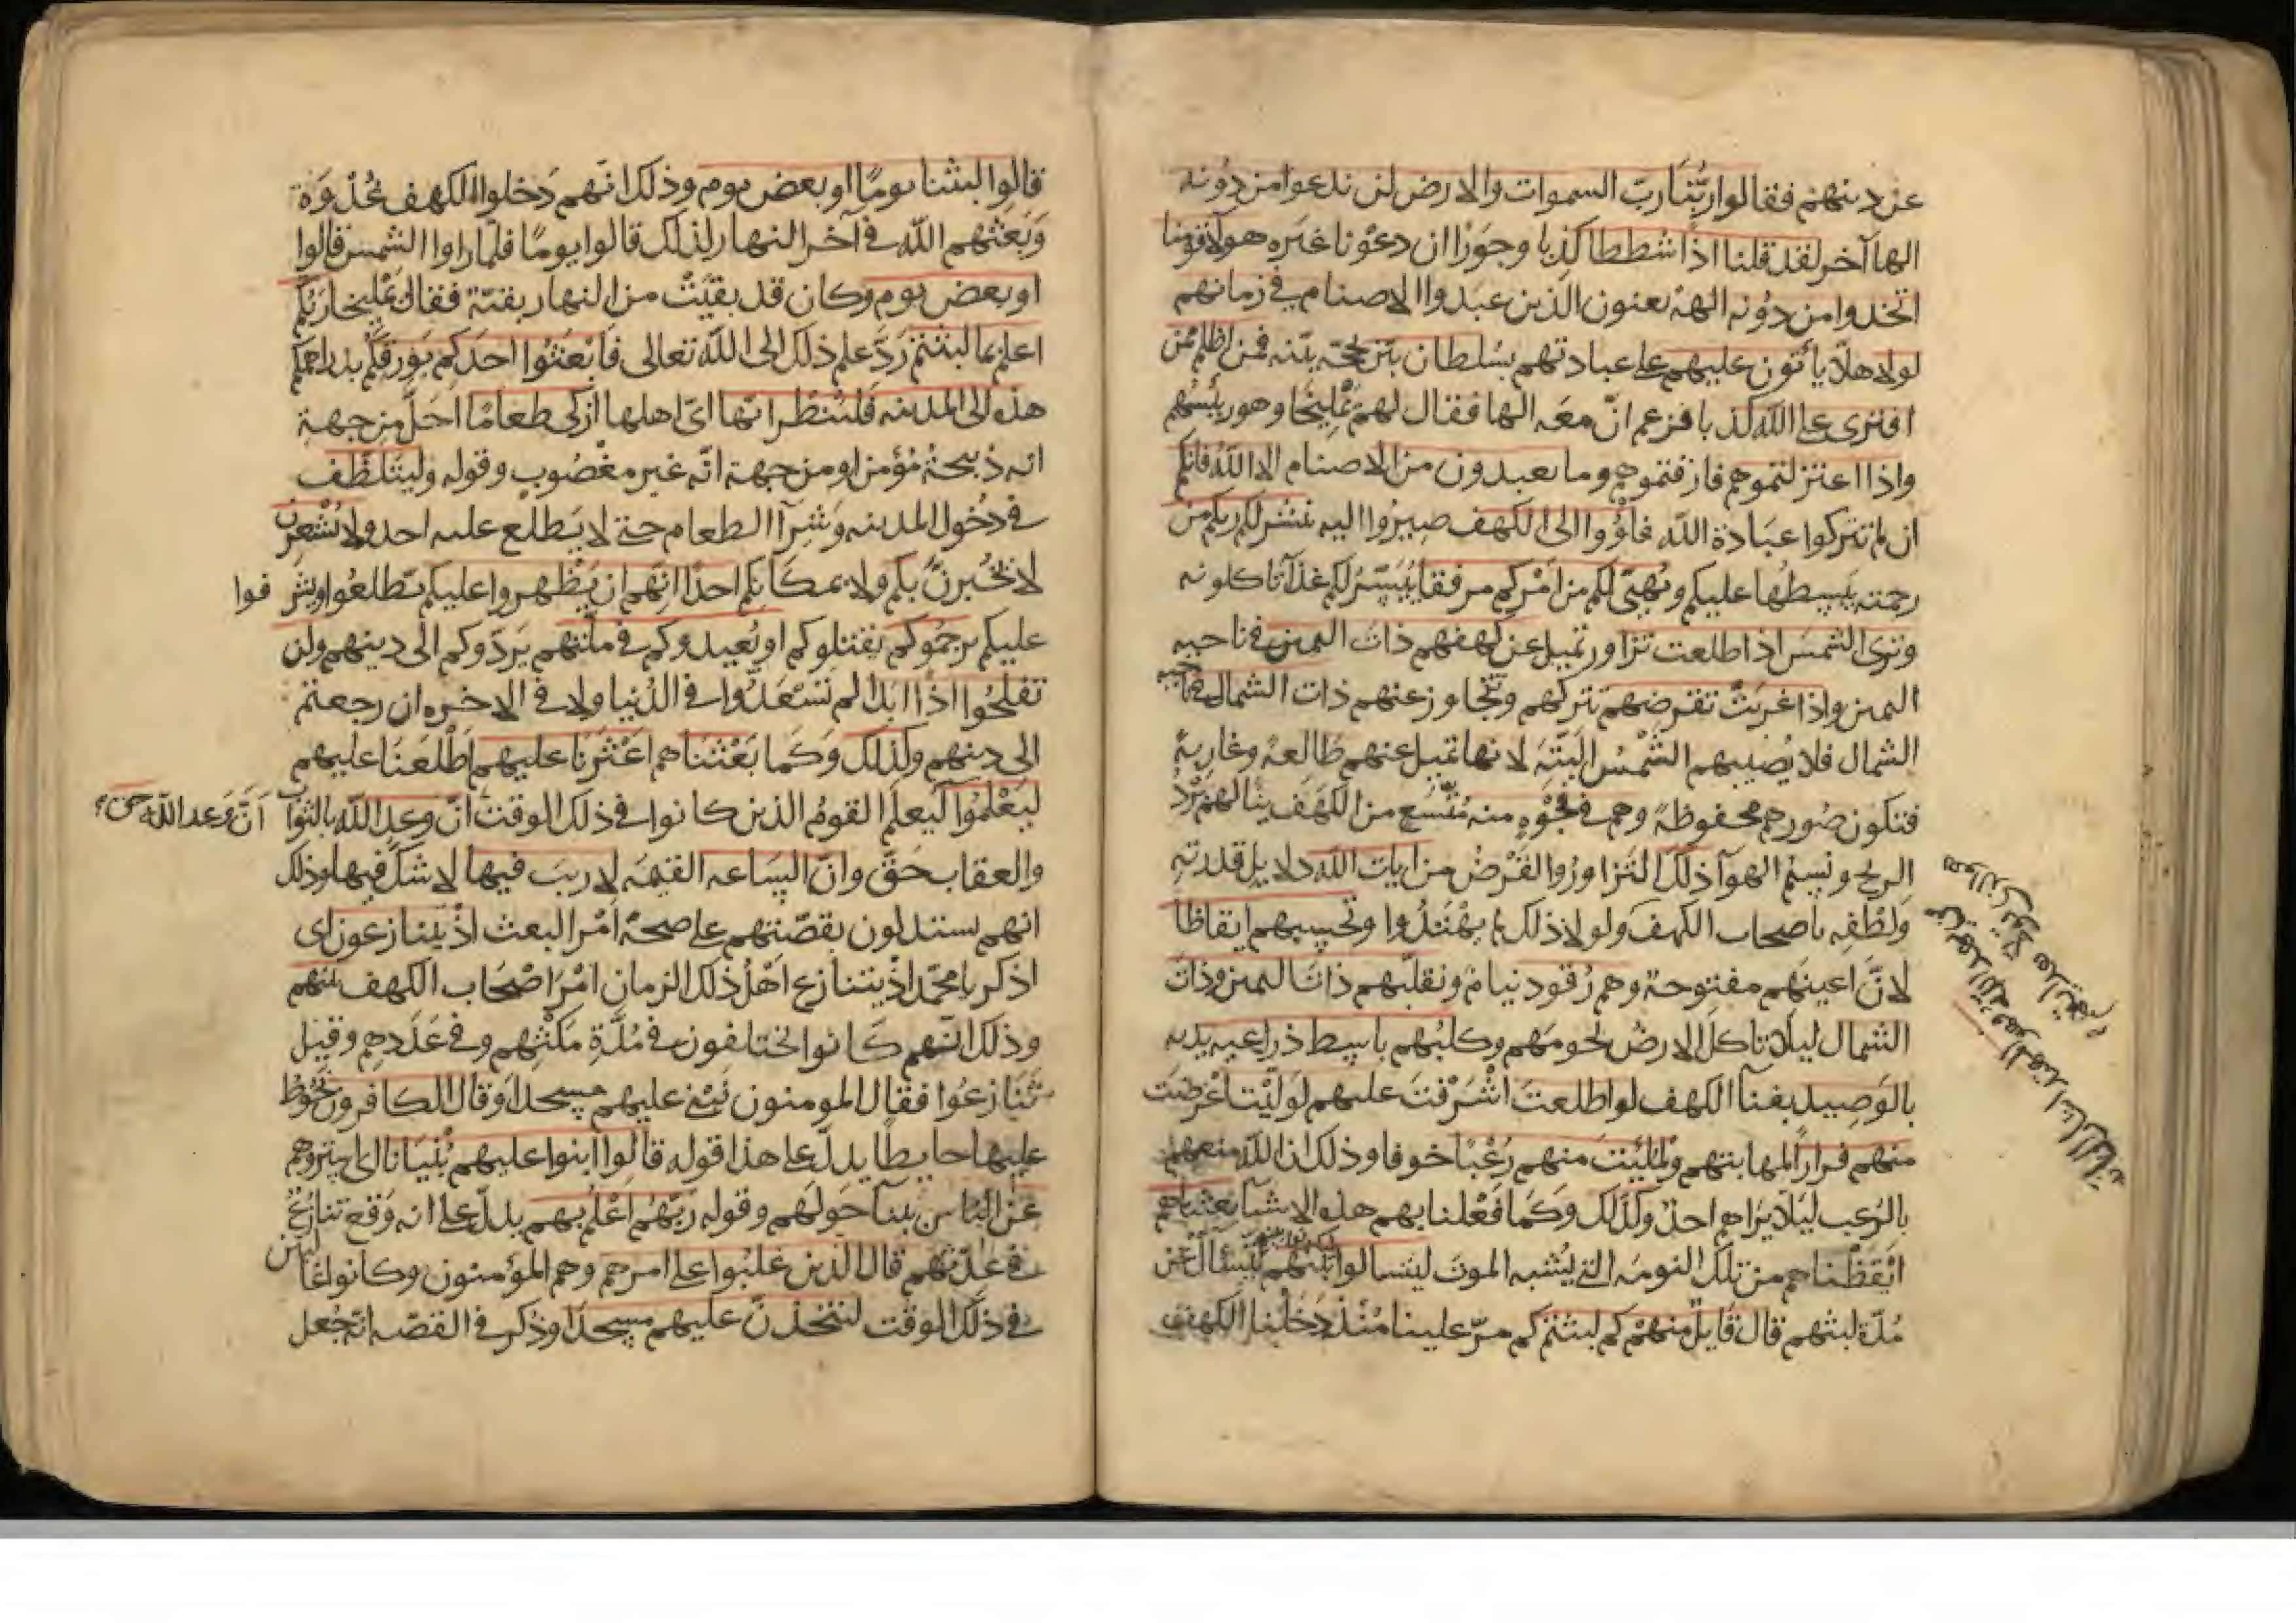 عن دينهم فقالوا ربُّنَا ربّ السموات والارض لن ندعوا من دُونه
الها آخر لقد قلنا اذًا شططا كذبا وجَورًا ان دعَوْنا غيَره هولآء قومنا
اتخذوا من دُونه الهة يعنون الذين عبَدوا الاصنام في زمانهم
لولا هلّا يأتون عليهم على عبادتهم بسُلطان بيّن بحجّة بيّنه فمن اظلم ممّن
افترى على الله كذبا فزعم انّ معَه الها فقال لهم يَمْلِيخَا وهو رئيسُهم
واذا اعتزلتموهم فارقتموهم وما يعبدون من الاصنام الا اللهَ فانكم
ان لم تتركوا عبَادة الله فاوُوا الى الكهف صِيرُوا اليه ينشر لكم ربكم من
رحمته يَبسِطُها عليكم ويُهيّئ لكم من اَمْركم مرفقا يُيَسّرُ لكم غذآتا كلونه
وترى الشمسَ اذا طلعت تزاور تميل عن كهفهم ذاتَ اليمين في ناحيه
اليمين واذا غربَتْ تقرضهم تتركهم وتتجاوز عنهم ذات الشمال في ناحية
الشمال فلا يُصيبهم الشَّمْسُ البَتَّة لانها تميل عنهم طَالعةً وغاربةً
فتكون صُورهم محفوظةً وهم في فَجْوَةٍ منه مُتَّسَع من الكهَف ينالهم بَرْدُ
الريح ونسِيْم الهوآ ذلك التزاورُ والقَرْضُ من ايات الله دلايل قدرته
ولُطْفِه باصحاب الكهف ولولا ذلك لم يهْتَدُوا وتحسِبهم ايقاظًا
لانَّ اعينَهم مفتوحة وهم رُقود نيامٌ ونقلّبهم ذاتَ اليمين وذاتَ
الشمال ليلا تاكل الارضُ لحومَهم وكلبُهم باسِط ذراعيه يديه
بالوَصِيد بفنآ الكهف لو اطلعتَ اشْرَفتَ عليهم لوَلّيْتَ اعْرَضتَ
منهم فرارًا لمهابتهم ولمُلِئْتَ منهم رُعْبًا خوفا وذلك ان الله منعهم
بالرُعب ليَلّا يرَاهم احدٌ وكذلك وَكما فَعْلنا بهم هذه الاشيآ بعثناهم
ايْقَظْناهم من تلك النومَه التي يُشبه الموتَ ليتسالوا بينهم ليتسآال عن
مُدّة لبثهم قال قَايلٌ منهم كم لبثتم كم مرّ علينا مُنْذُ دَخَلْنا الكهف
قالوا لبثنا يومًا او بعض يوم وذلك انّهم دَخلوا الكهف غُدْوَةً
وَبَعَثهم الله في آخر النهار لذلك قالوا يومًا فلمّا راوا الشمس قالوا
او بعض يوم وكان قد بقيَتْ من النهار بقيّة فقال يَمْلِيخا ربّكم
اعلم بما لبثتم رَدَّ علم ذلك الى الله تعالى فَابْعَثُوا احدَكم بوَرِقكُم بدراهمكم
هذه الى المدينه فَلْيَنْظُر ايّها اىّ اهلها ازكى طعامًا احَلّ من جهة
انه ذبيحة مُؤمن او من جهة انّه غير مغْصُوبٍ وقوله وليَتَلَطَّف
في دُخول المدينه وشِرآ الطعام حتى لا يَطلع عليه احد ولا يُشْعِرَنّ
لا يُخْبرنَّ بكم ولا بمكَانِكم احدًا انهم ان يَظْهروا عليكم يطّلعُوا ويشرفوا
عليكم يرجمُوكم يقتلوكم او يُعيدوكم في ملّتهم يَرَدّوكم الى دينهم ولن
تفلحُوا اذًا ابدا لم تَسْعَدُوا في الدُنيا ولا في الاخره ان رجعتم
الى دينهم وكذلك وَكما بعَثْنَاهم اعْثَرْنا عليهم اطْلَعَنَا عليهم
ليَعْلمُوا ليَعلَم القومُ الذين كانوا في ذلك الوقت انّ وعد الله بالثواب
اَنَّ وَعد الله حق
والعقاب حَقّ وانّ السَاعه القيٰمَه لا ريبَ فيها لا شكّ فيها وذلك
انهم يستدلون بقصّتهم على صحّة اَمْر البعث اذْ يتنازعون اى
اذكر يا محمّد اذْ يتنازع اَهْلُ ذلك الزمان اَمْرَ اصْحَاب الكهف بينهم
وذلك انّهم كانوا يختلفون في مُدَّةِ مَكْثِهم وفي عَدَدِهم وقيل
تَنَازعُوا فقال المومنون نَبْنى عليهم مسجدا وقال الكافرون نحُوّط
عليها حايطا يدلّ على هذا قوله قالوا ابنوا عليهم بُنْيَانا اى يستروهم
عَنْ النَاس بِبنآ حَولهَم وقوله رَبّهُم اعْلَمُ بهم يدلّ على انه وَقع تنازُعٌ
في عدّتهم قال الذين غلبُوا على امرهم وهم المؤمنون وكانوا غالبين
في ذلك الوقت لنتخذنّ عليهم مسجدًا وذكر في القصّه انّه جُعل